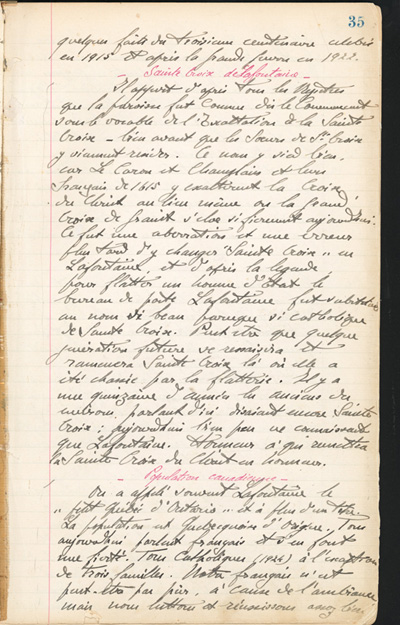 35
quelques faits du troisième centenaire célébré
en 1915 et après la grande guerre en 1922.
Sainte Croix de Lafontaine
Il appert d'après tous les Registres
que la paroisse fut connue dès le commencement
sous le vocable de l'Exaltation de la Sainte
Croix - bien avant que les Sœurs de Ste Croix
y vinrent résider. Ce nom y sied bien,
car Le Caron et Champlain et leurs
français de 1615 y exaltèrent la Croix
du Christ au lieu même où la grande
Croix de granit s'élève si fièrement aujourd'hui.
Ce fut une aberration et une erreur
plus tard d'y changer "Sainte Croix" en
Lafontaine, et d'après la légende
pour flatter un homme d'État le
bureau de poste Lafontaine fut substitué
au nom si beau parce que si catholique
de Sainte Croix. Peut être que quelque
génération future se ravisera et
ramènera Sainte Croix là où elle a
été chassée par la flatterie. Il y a
une quinzaine d'années les anciens du
parlant d'ici disaient encore Sainte
Croix ; aujourd'hui l'on peu ne connaissant
que Lafontaine. Honneur à qui remettra
la Sainte Croix du Christ en honneur.
Population canadienne
On a appelé souvent Lafontaine le
"petit Québec d'Ontario" et à plus d'un titre
La population est Québecquoise d'origine, Tous
aujourd'hui parlent français et s'en font
une fierté. Tous Catholiques (1926) à l'exception
de trois familles. Notre français n'est
peut-être pas pur, à cause de l'ambiance
mais nous luttons et réussissons assez bien